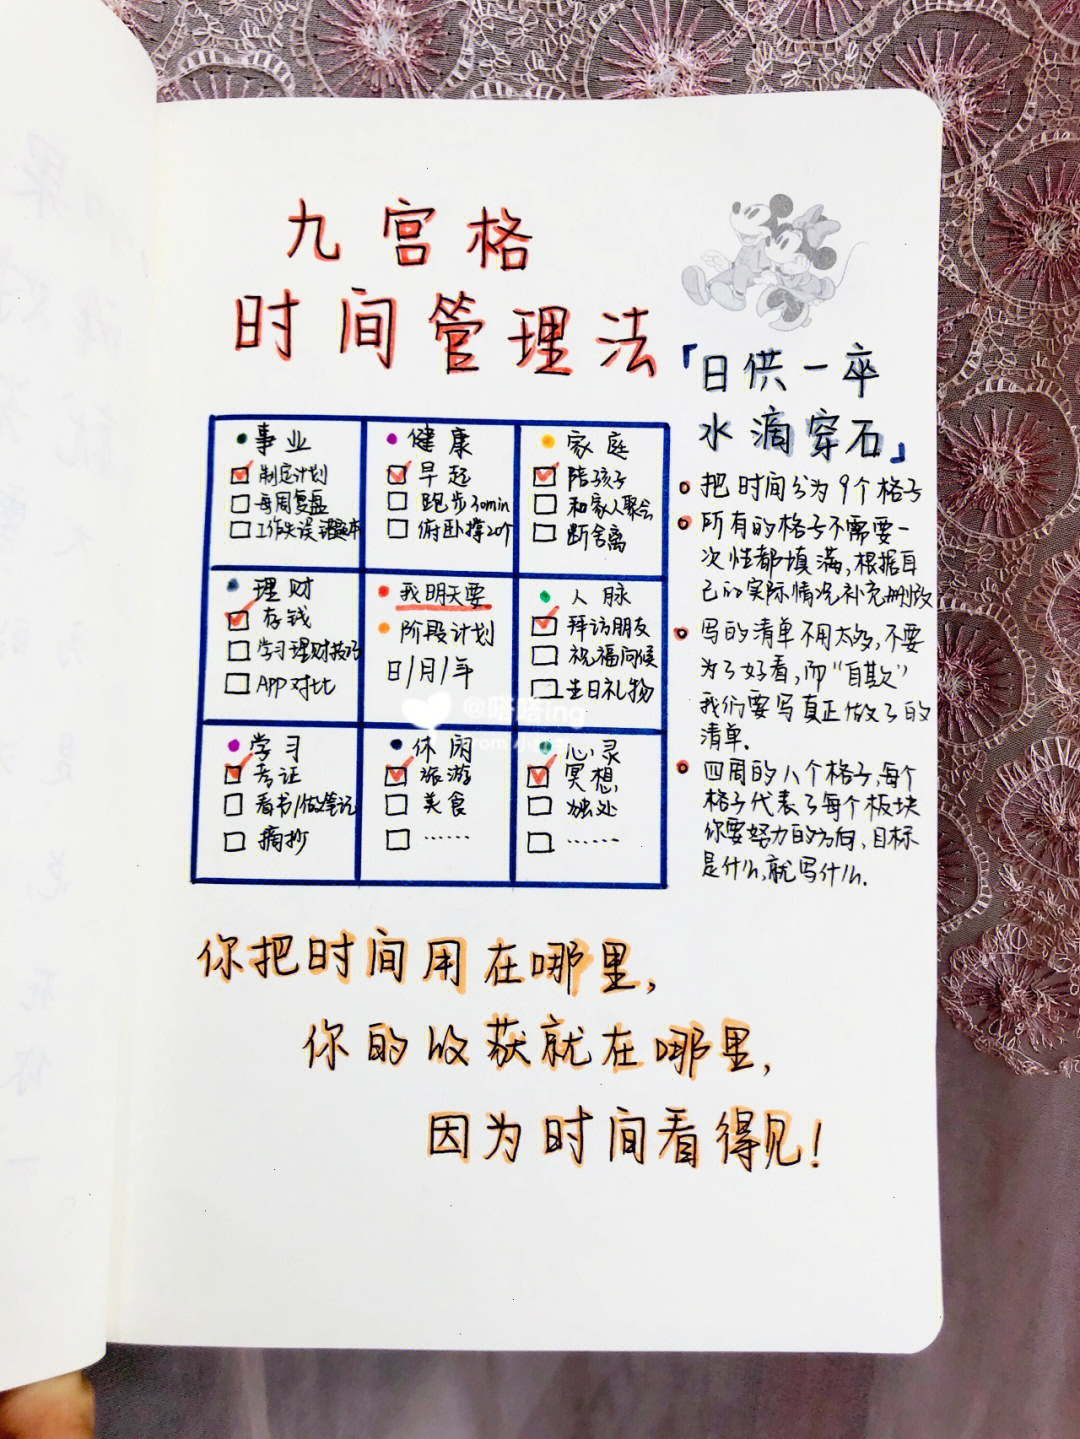 九宫格
时间管理法
「日供一卒
水滴穿石」
事业
制定计划
每周复盘
工作失误错题本
健康
早起
跑步30min
俯卧撑20个
家庭
陪孩子
和家人聚会
断舍离
理财
存钱
学习理财技巧
APP对比
我明天要
阶段计划
日/月/年
人脉
拜访朋友
祝福问候
生日礼物
学习
考证
看书/做笔记
摘抄
休闲
旅游
美食
……
心灵
冥想
独处
……
把时间分为9个格子
所有的格子不需要一
次性都填满,根据自
己的实际情况补充删改
写的清单不用太多,不要
为了好看,而“自欺”
我们要写真正做了的
清单.
四周的八个格子,每个
格子代表了每个板块
你要努力的方向,目标
是什么,就写什么.
你把时间用在哪里,
你的收获就在哪里,
因为时间看得见!